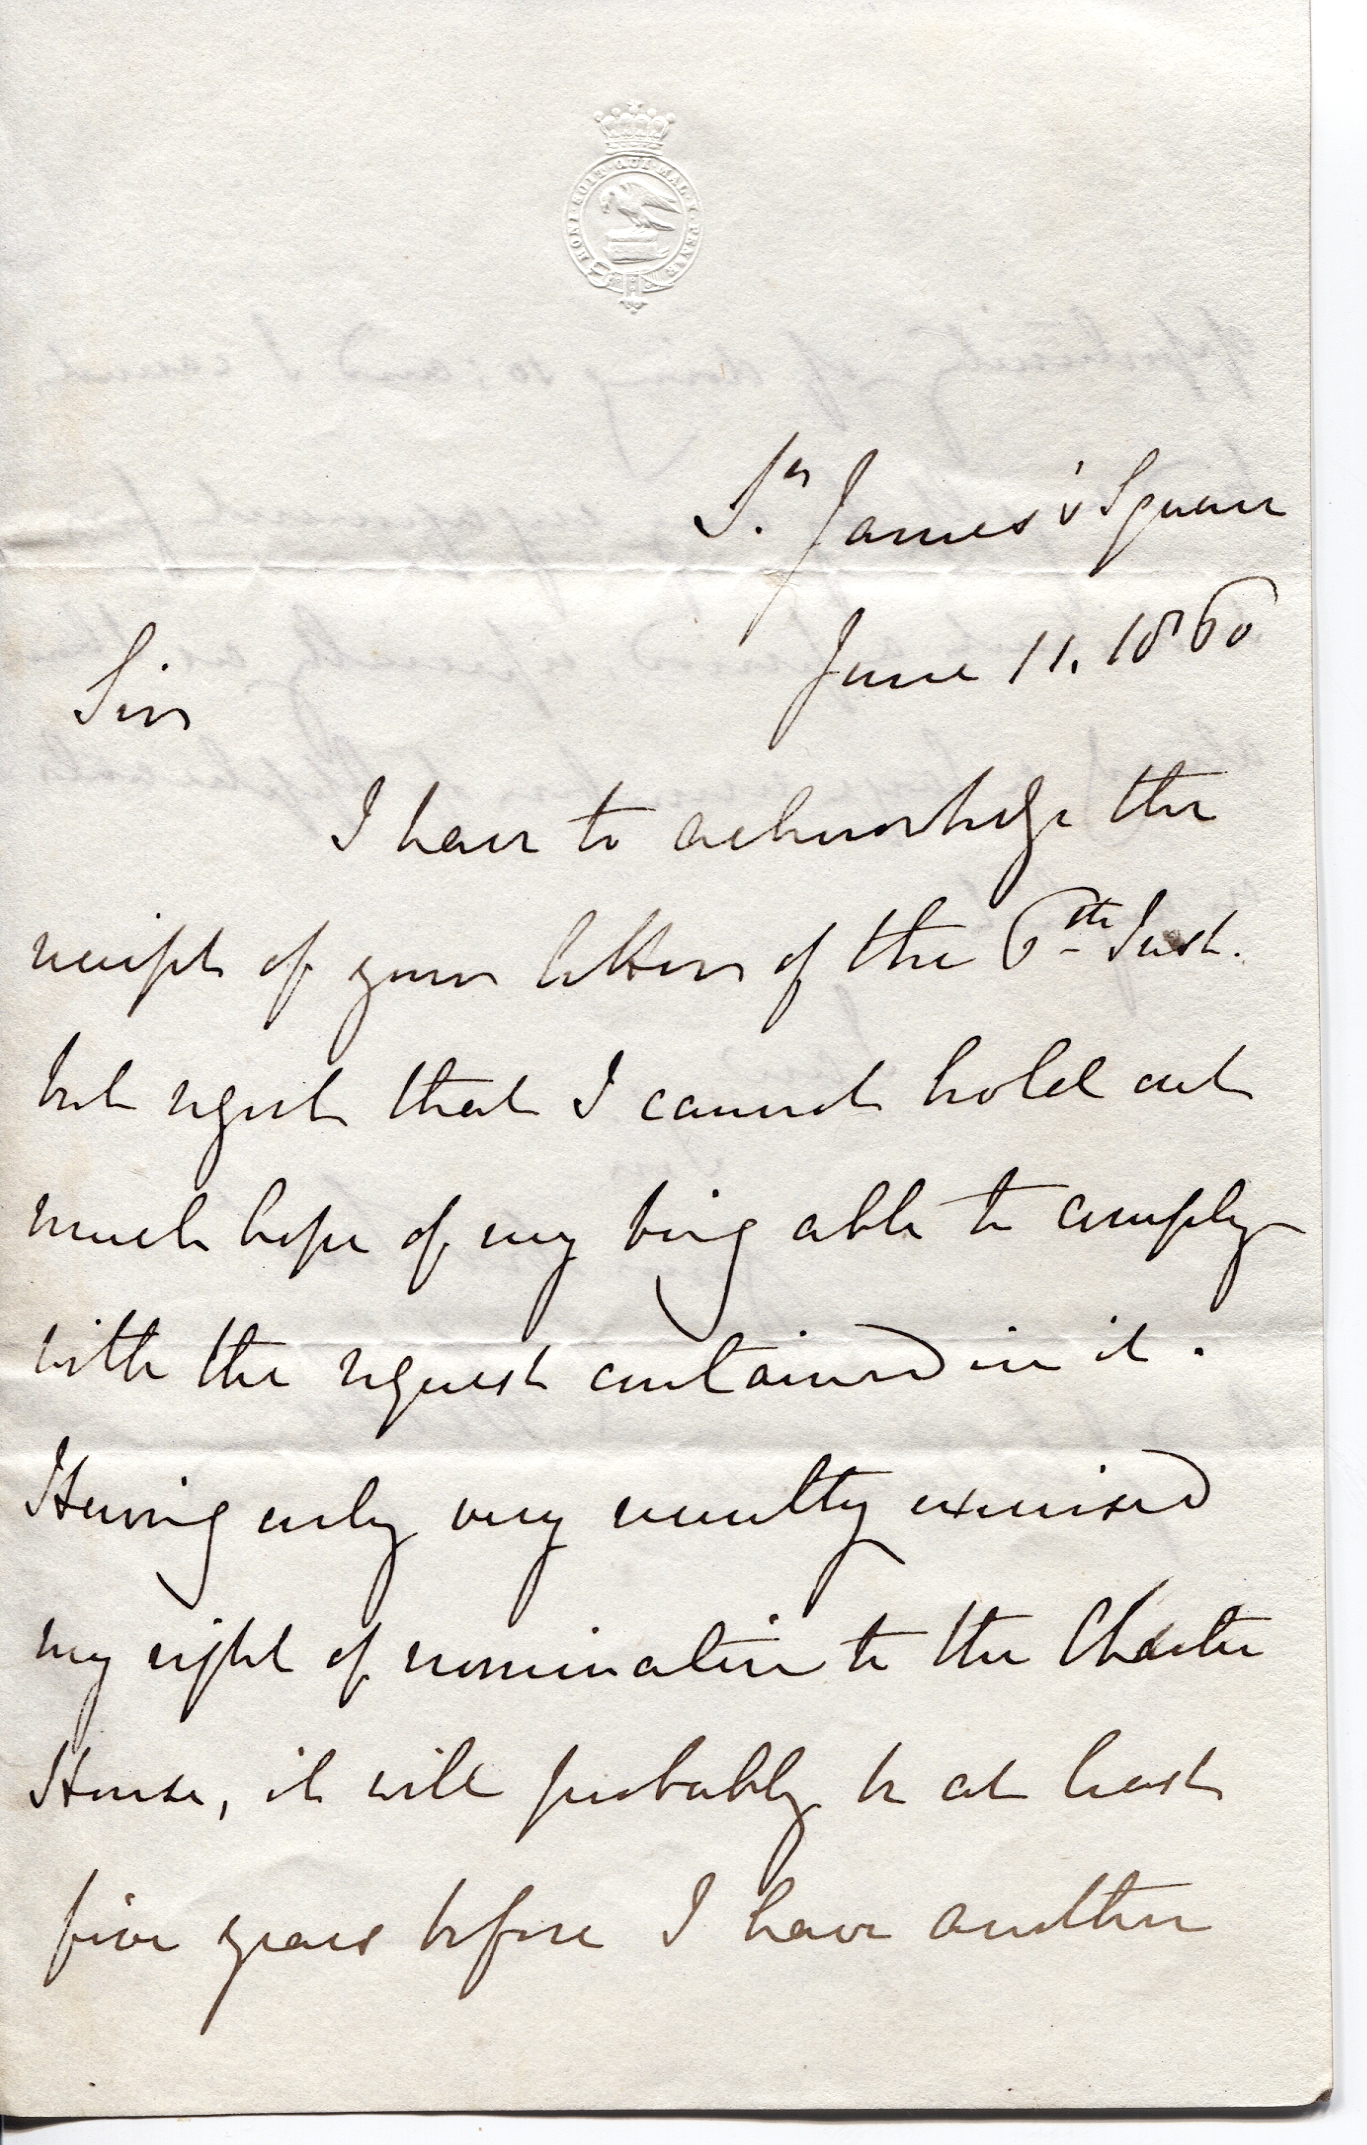 HONI·SOIT·QUI·MAL·Y·PENSE
St. James's Square
June 11. 1860
Sir
I have to acknowledge the
receipt of your letter of the 6th Inst.
but regret that I cannot hold out
much hope of my being able to comply
with the request contained in it.
Having only very recently exercised
my right of nomination to the Charter
House, it will probably be at least
five years before I have another